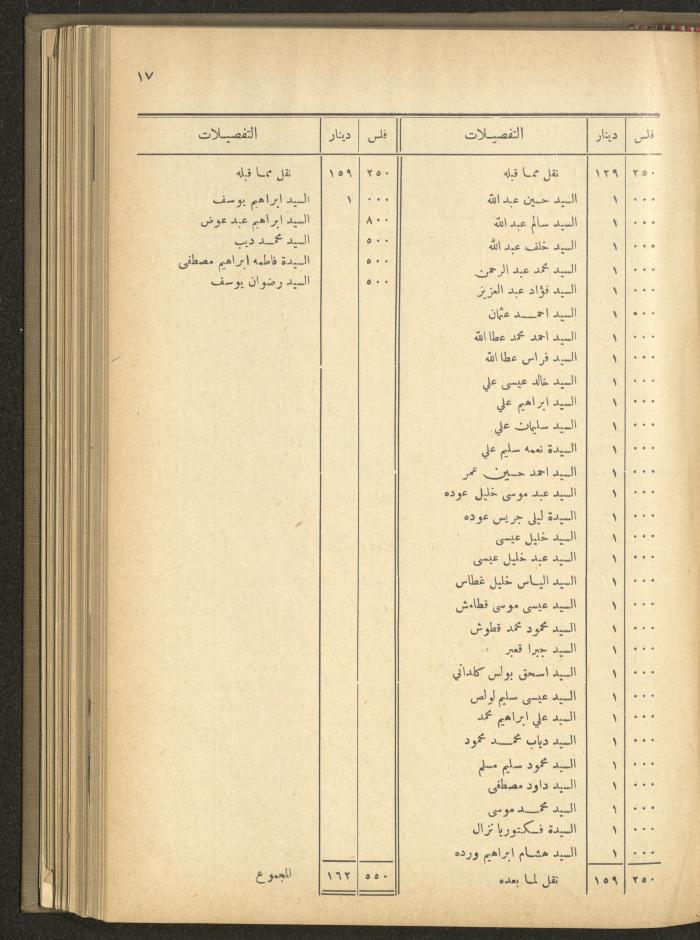 ١٧
فلس دينار التفصيلات
٢٥٠ ١٢٩ نقل مما قبله
٠٠٠ ١ السيد حسين عبد الله
٠٠٠ ١ السيد سالم عبد الله
٠٠٠ ١ السيد خلف عبد الله
٠٠٠ ١ السيد محمد عبد الرحمن
٠٠٠ ١ السيد فؤاد عبد العزيز
٠٠٠ ١ السيد احمد عثمان
٠٠٠ ١ السيد احمد محمد عطا الله
٠٠٠ ١ السيد فراس عطا الله
٠٠٠ ١ السيد خالد عيسى علي
٠٠٠ ١ السيد ابراهيم علي
٠٠٠ ١ السيد سليمان علي
٠٠٠ ١ السيدة نعمه سليم علي
٠٠٠ ١ السيد احمد حسين عمر
٠٠٠ ١ السيد عبد موسى خليل عوده
٠٠٠ ١ السيدة ليلى جريس عوده
٠٠٠ ١ السيد خليل عيسى
٠٠٠ ١ السيد عبد خليل عيسى
٠٠٠ ١ السيد الياس خليل غطاس
٠٠٠ ١ السيد عيسى موسى قطامش
٠٠٠ ١ السيد محمود محمد قطوش
٠٠٠ ١ السيد جبرا قعبر
٠٠٠ ١ السيد اسحق بولس كلداني
٠٠٠ ١ السيد عيسى سليم لولص
٠٠٠ ١ السيد علي ابراهيم محمد
٠٠٠ ١ السيد دياب محمد محمود
٠٠٠ ١ السيد محمود سليم مسلم
٠٠٠ ١ السيد داود مصطفى
٠٠٠ ١ السيد محمد موسى
٠٠٠ ١ السيدة فكتوريا نزال
٠٠٠ ١ السيد هشام ابراهيم ورده
٢٥٠ ١٥٩ نقل لما بعده
فلس دينار التفصيلات
٢٥٠ ١٥٩ نقل مما قبله
٠٠٠ ١ السيد ابراهيم يوسف
٨٠٠ السيد ابراهيم عبد عوض
٥٠٠ السيد محمد ديب
٥٠٠ السيدة فاطمه ابراهيم مصطفى
٥٠٠ السيد رضوان يوسف
٥٥٠ ١٦٢ المجموع